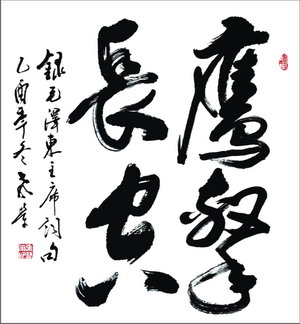 鷹擊
長空
錄毛澤東主席詞句
乙酉年冬